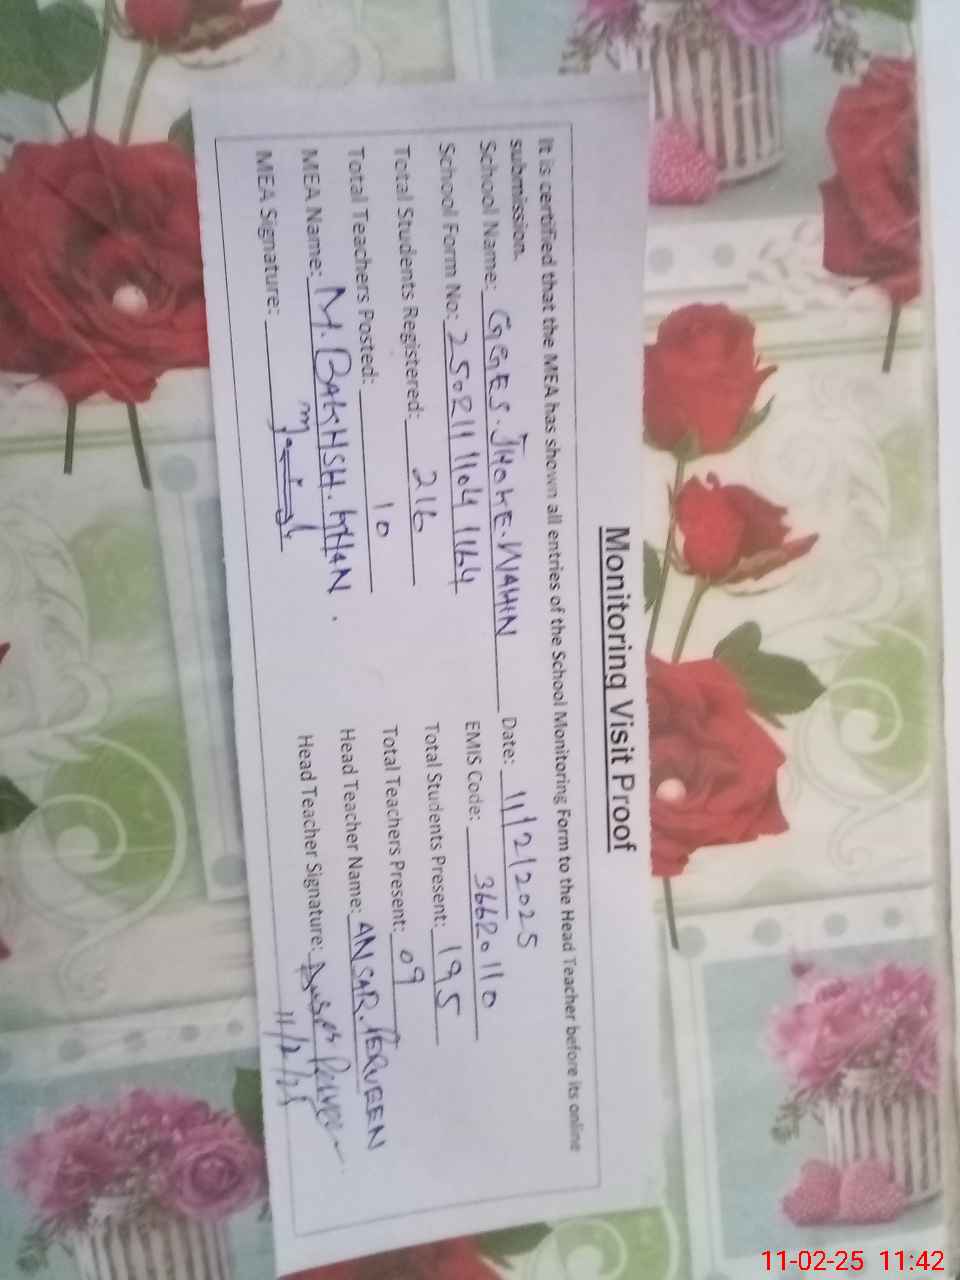 Monitoring Visit Proof
It is certified that the MEA has shown all entries of the School Monitoring Form to the Head Teacher before its online
submission.
School Name: GGES. JHOKE. WAHIN Date: 11/2/2025
School Form No: 25021111041164 EMIS Code: 36620110
Total Students Registered: 216 Total Students Present: 195
Total Teachers Posted: 10 Total Teachers Present: 09
MEA Name: M. BAKHSH. KHAN. Head Teacher Name: ANSAR. PERVEEN
MEA Signature: Head Teacher Signature:
11/2/25
11-02-25 11:42